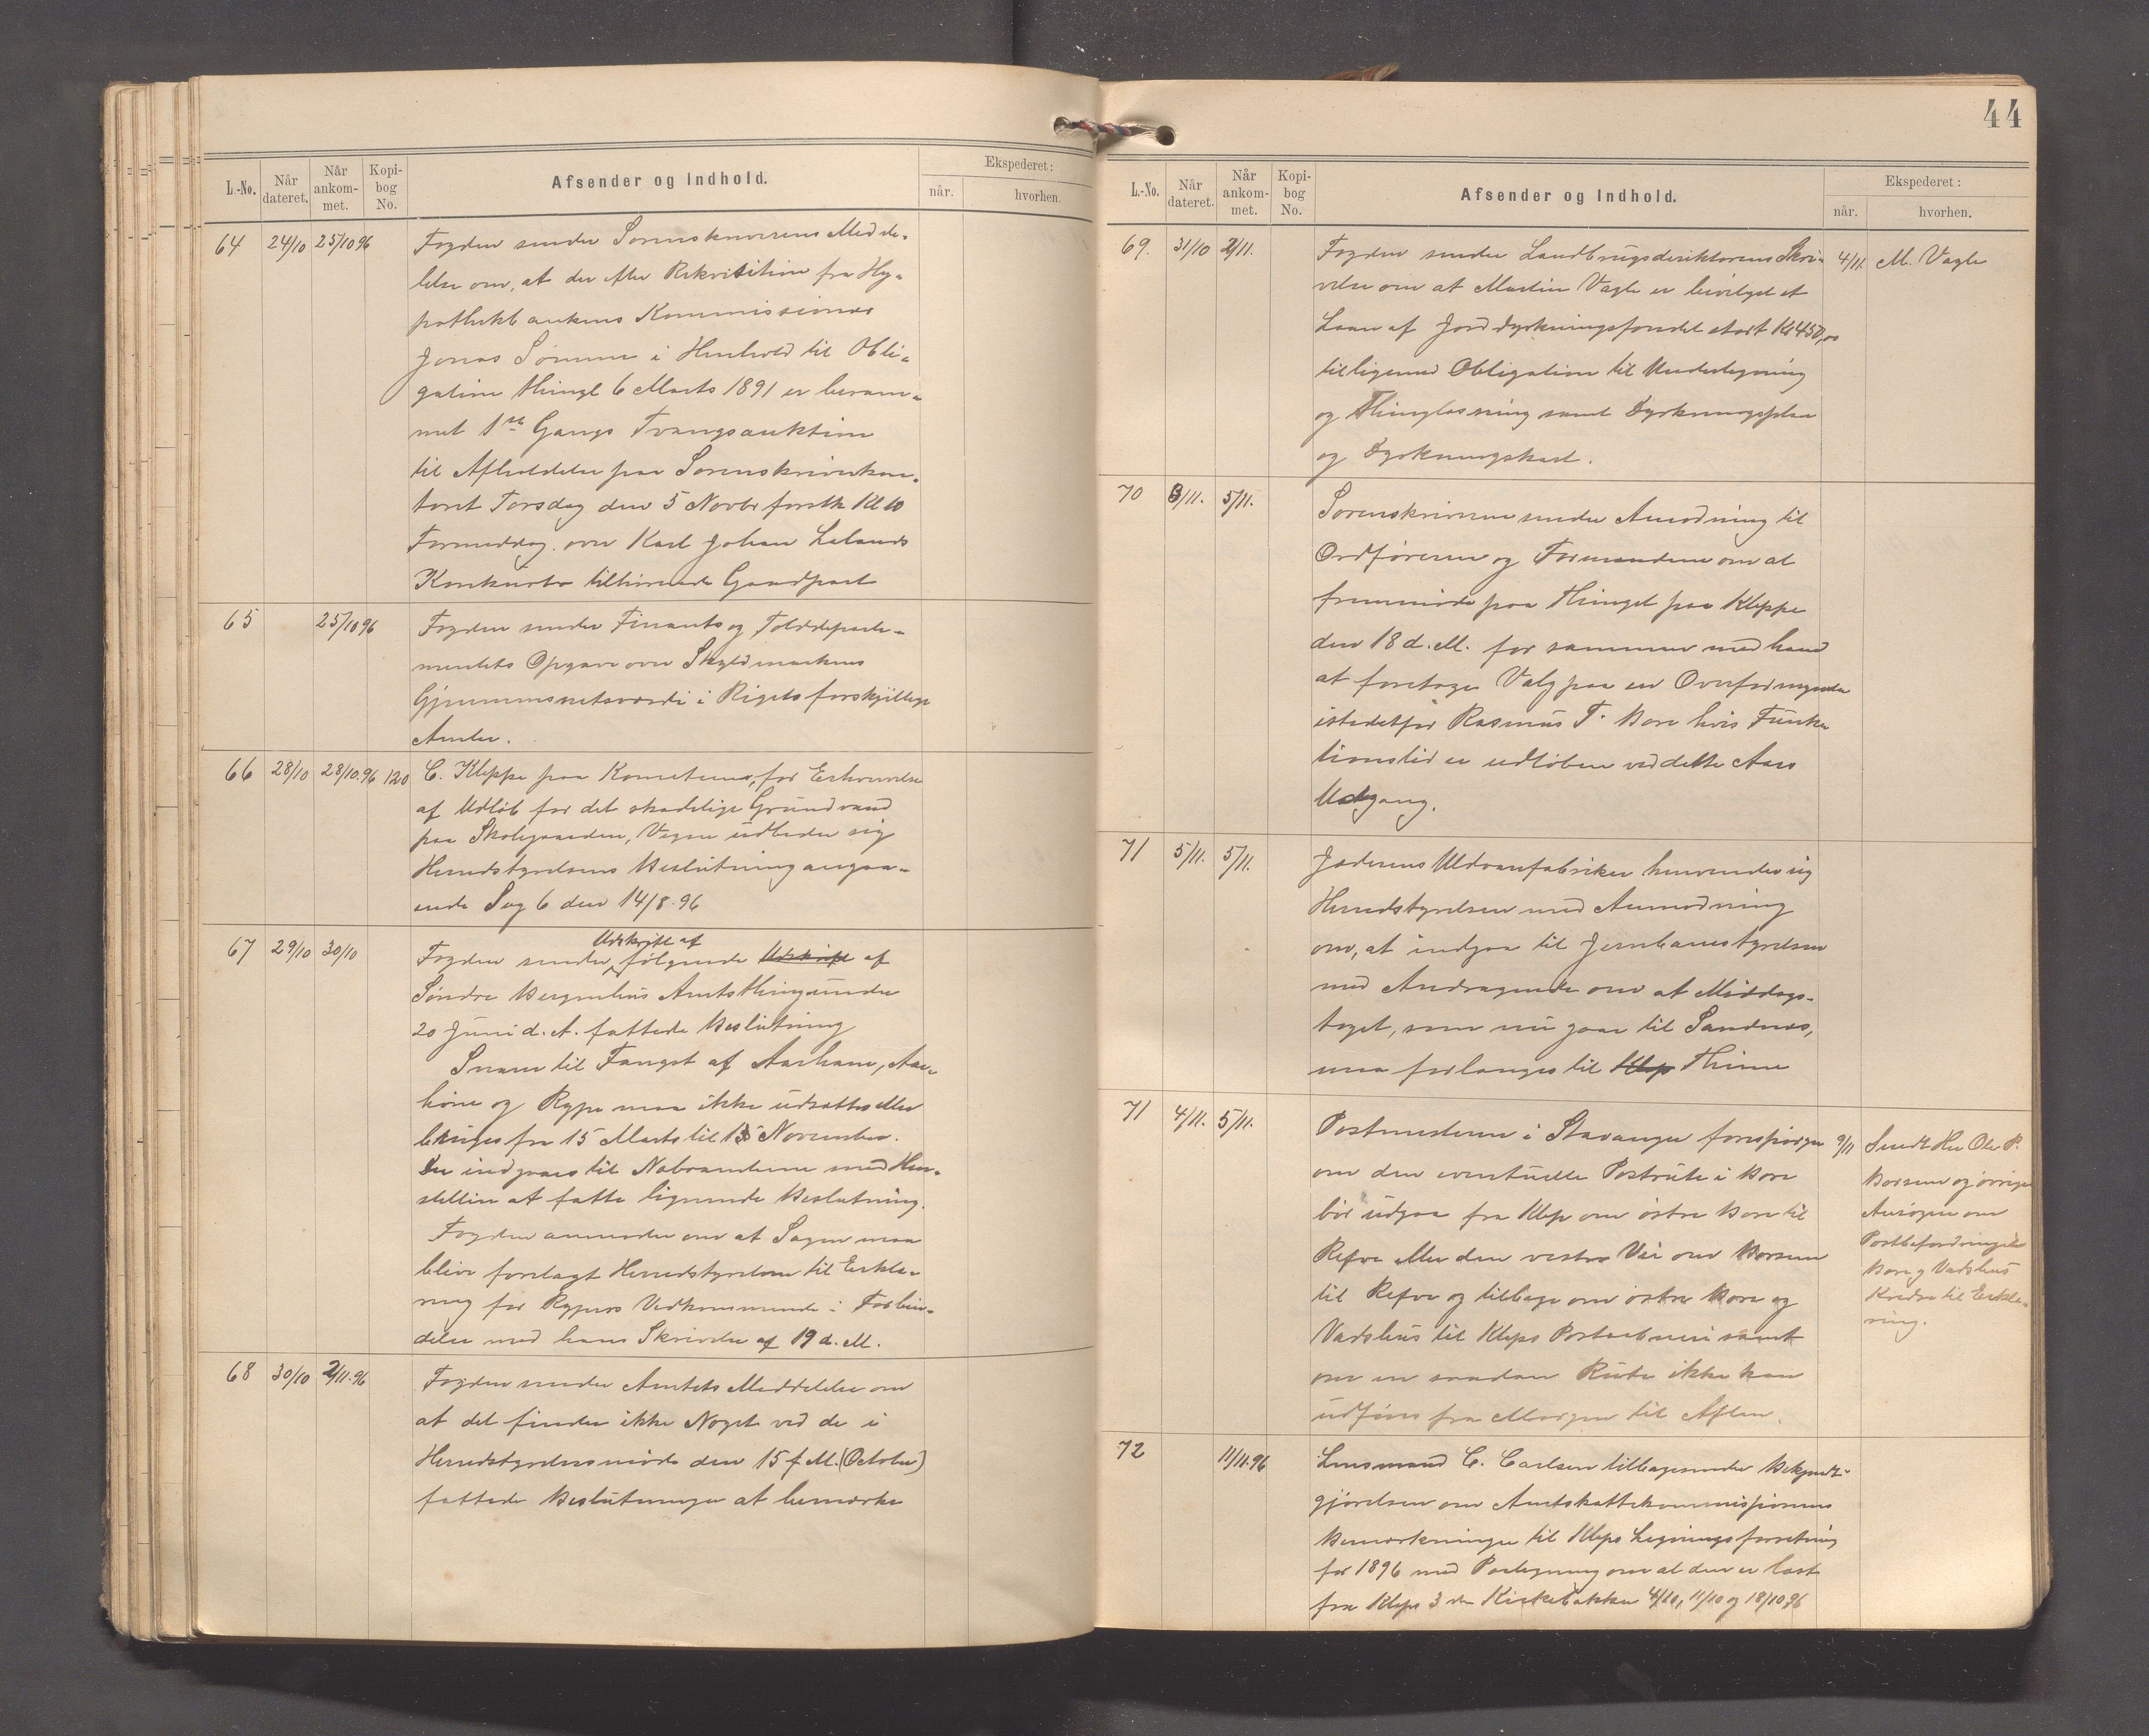 L.-No. Når dateret. Når ankom- met. Kopi- bog No. Afsender og Indhold. Ekspederet: når. hvorhen.
64 24/10 25/10 96 Fogden sender Sorenskriverens Medde-
lelse om, at der efter Rekvisition fra Hy-
pothekbankens Kommissionær
Jonas Sømme i Henhold til Obli-
gation thingl 6 Marts 1891 er beram-
met 1ste Gangs Tvangsauktion
til Afholdelse paa Sorenskriverkon-
toret Torsdag den 5 Novbr førstk Kl 10
Formiddag over Karl Johan Lalands
Konkursbo tilhørende Gaardpart
65 25/10 96 Fogden sender Finants og Tolddeparte-
mentets Opgave over Skyldmarkens
Gjennemsnetsværdi i Rigets forskjellige
Amter.
66 28/10 28/10.96 120 C. Kleppe paa Komiteens, for Erhvervelse
af Udløb for det skadelige Grundvand
paa Skolegaarden, Vegne udbeder sig
Herredstyrelsens Beslutning angaa-
ende Sag 6 den 14/8.96
67 29/10 30/10 Fogden sender Udskrift af følgende Udskrift af
Søndre Bergenhus Amtsthing under
20 Juni d. A. fattede Beslutning
Snare til Fangst af Aarhane, Aar-
høne og Rype maa ikke udsættes eller
bruges fra 15 Marts til 15 November.
Der indgaaes til Naboamterne med Hen-
stillin at fatte lignende Beslutning.
Fogden anmoder om at Sagen maa
blive forelagt Herredstyrelsen til Erklæ-
ring for Rypers Vedkommende i Forbin-
delse med hans Skrivelse af 19 d. M.
68 30/10 2/11.96 Fogden sender Amtets Meddelelse om
at det finder ikke Noget ved de i
Herredstyrelsesmøde den 15 f. M. (October)
fattede Beslutninger at bemærke
44
L.-No. Når dateret. Når ankom- met. Kopi- bog No. Afsender og Indhold. Ekspederet: når. hvorhen.
69. 31/10 2/11. Fogden sender Landbrugsdirektørens Skri- 4/11. M. Vagle
velse om at Martin Vagle er bevilget et
Laan af Jorddyrkningsfondet stort Kr 450,00
tilligemed Obligation til Underlegning
og Thinglæsning samt Dyrkningsplan
og Dyrkningskart.
70 3/11. 5/11. Sorenskriveren sender Anmodning til
Ordføreren og Formændene om at
fremmøde paa Thinget paa Kleppe
den 18 d. M. for sammen med ham
at foretage Valg paa en Overformynder
istedetfor Rasmus T. Bore hvis Funk-
tionstid er udløben ved dette Aars
Udgang.
71 5/11. 5/11. Jæderens Uldvarefabriker henvender sig
Herredstyrelsen med Anmodning
om, at indgaa til Jernbanestyrelsen
med Andragende om at Middags-
toget, som nu gaar til Sandnæs,
maa forlænges til Klep Thime
71 4/11. 5/11. Postmesteren i Stavanger forespørger 9/11 Sendt Hr Ole P.
om den eventuelle Postrute i Bore Borsem og øvrige
bør udgaa fra Klep om østre Bore til Ansøgere om
Refve eller den vestre Vei om Borsem Postbefordring
til Refve og tilbage om østre Bore og Bore og Vadshus
Vadshus til Kleps Postaabneri samt Kredse til Erklæ-
om en saadan Rute ikke kan ring.
udføres fra Morgen til Aften.
72 11/11.96 Lensmand C. Carlsen tilbagesender Bekjendt-
gjørelsen om Amtskattekommissionens
Bemærkninger til Kleps Ligningsforretning
for 1896 med Paategning om at den er læst
fra Kleps 3 de Kirkebakker 4/10, 11/10 og 18/10 96